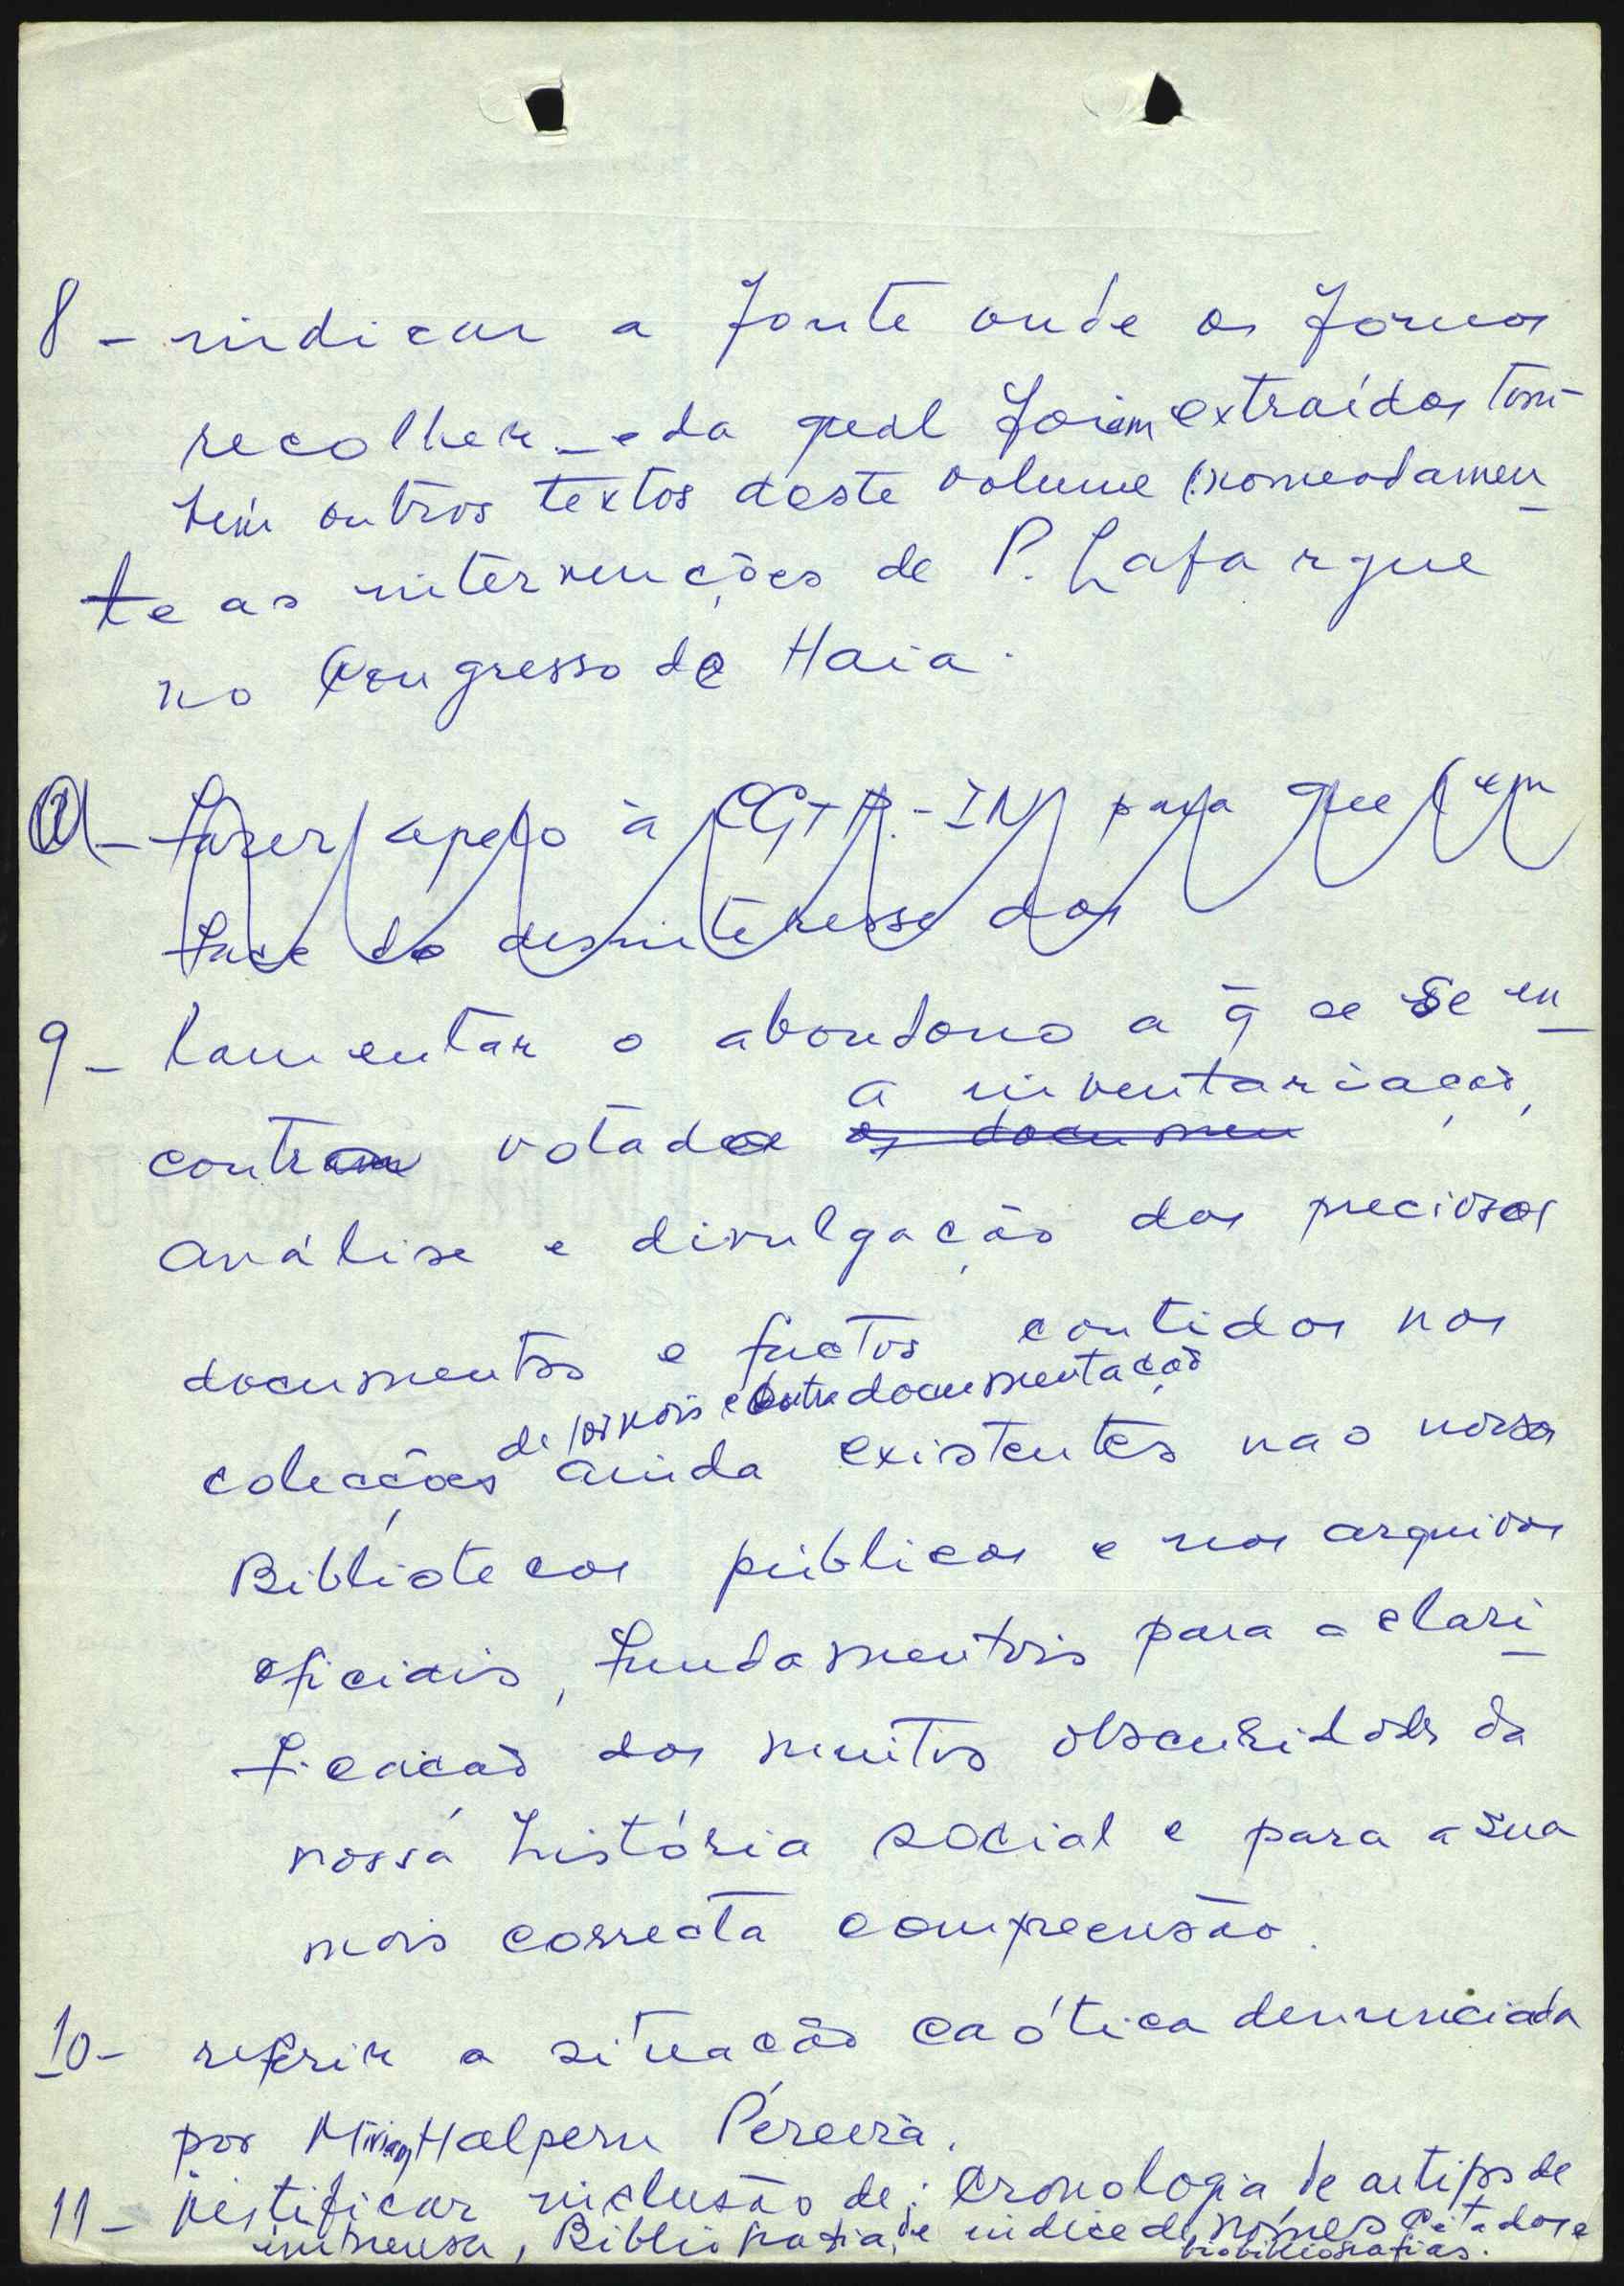 8 - indicar a fonte onde os fomos
recolher _ e da qual foram extraídos tam-
bém outros textos deste volume (nomeadamen-
te as intervenções de P. Lafargue
no Congresso de Haia.
- fazer apelo à CGTP-IN para que em
face do desinteresse dos
9 - lamentar o abandono a q̄ se en-
contra votada a inventariação,
os documen
análise e divulgação dos preciosos
documentos e factos contidos nas
de jornais e outra documentação
colecções ainda existentes nas nossas
Bibliotecas públicas e nos arquivos
oficiais, fundamentais para a clari-
ficação das muitas obscuridades da
nossa história social e para a sua
mais correcta compreensão.
10 - referir a situação caótica denunciada
por Miriam Halpern Pereira.
11 - justificar inclusão de: Cronologia, de artigos de
imprensa, Bibliografia, de indice de nomes citados e
biobibliografias.